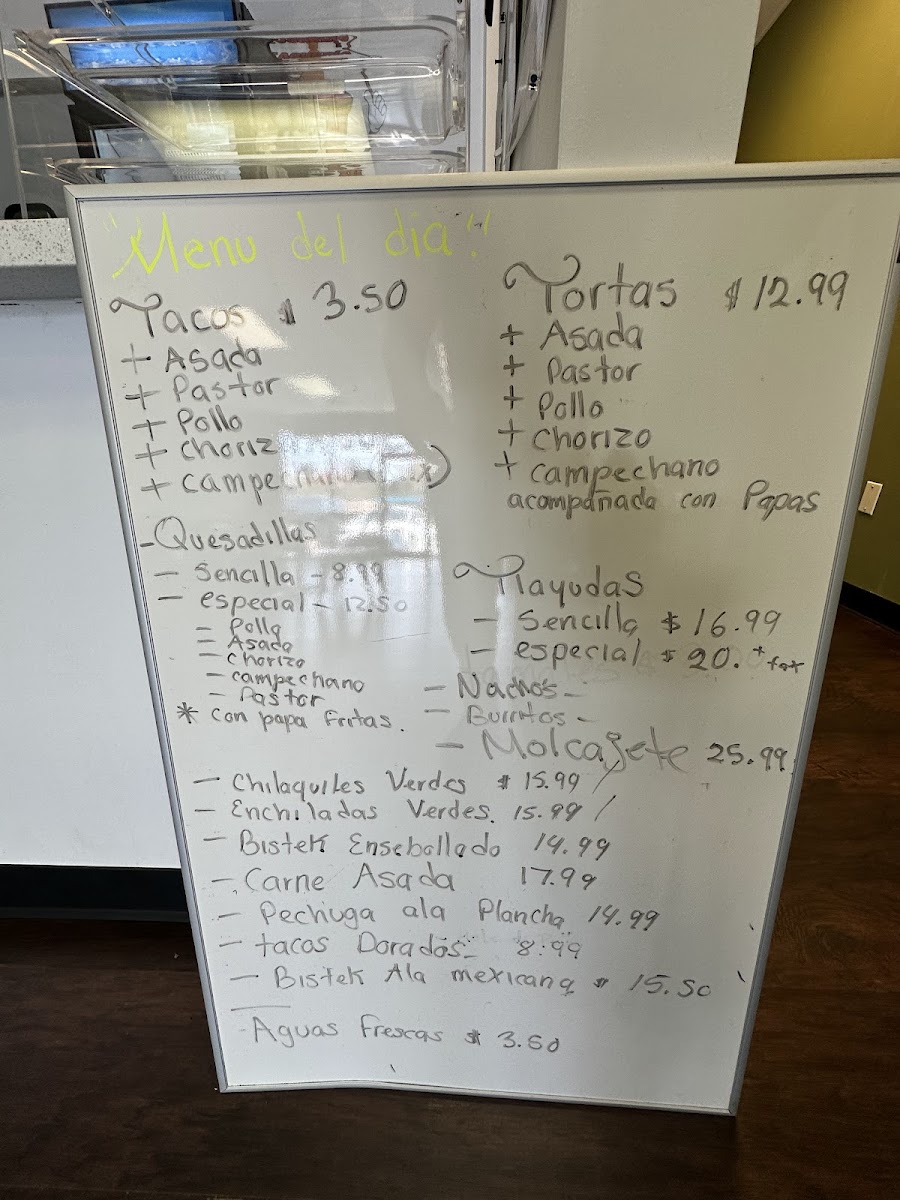 "Menu del dia"
Tacos $ 3.50
+ Asada
+ Pastor
+ Pollo
+ choriz
+ campechano
- Quesadillas
- Sencilla - 8.99
- especial - 12.50
- Pollo
- Asada
- chorizo
- campechano
- Pastor
* con papa Fritas.
Tortas $ 12.99
+ Asada
+ Pastor
+ Pollo
+ chorizo
+ campechano
acompañada con Papas
Tlayudas
- Sencilla $ 16.99
- especial $ 20.
- Nachos -
- Burritos -
- Molcajete 25.99
- Chilaquiles Verdes $ 15.99 /
- Enchiladas Verdes. 15.99 /
- Bistek Enseballado 14.99
- Carne Asada 17.99
- Pechuga ala Plancha 14.99
- tacos Dorados - 8.99
- Bistek Ala mexicana $ 15.50
- Aguas Frescas $ 3.50